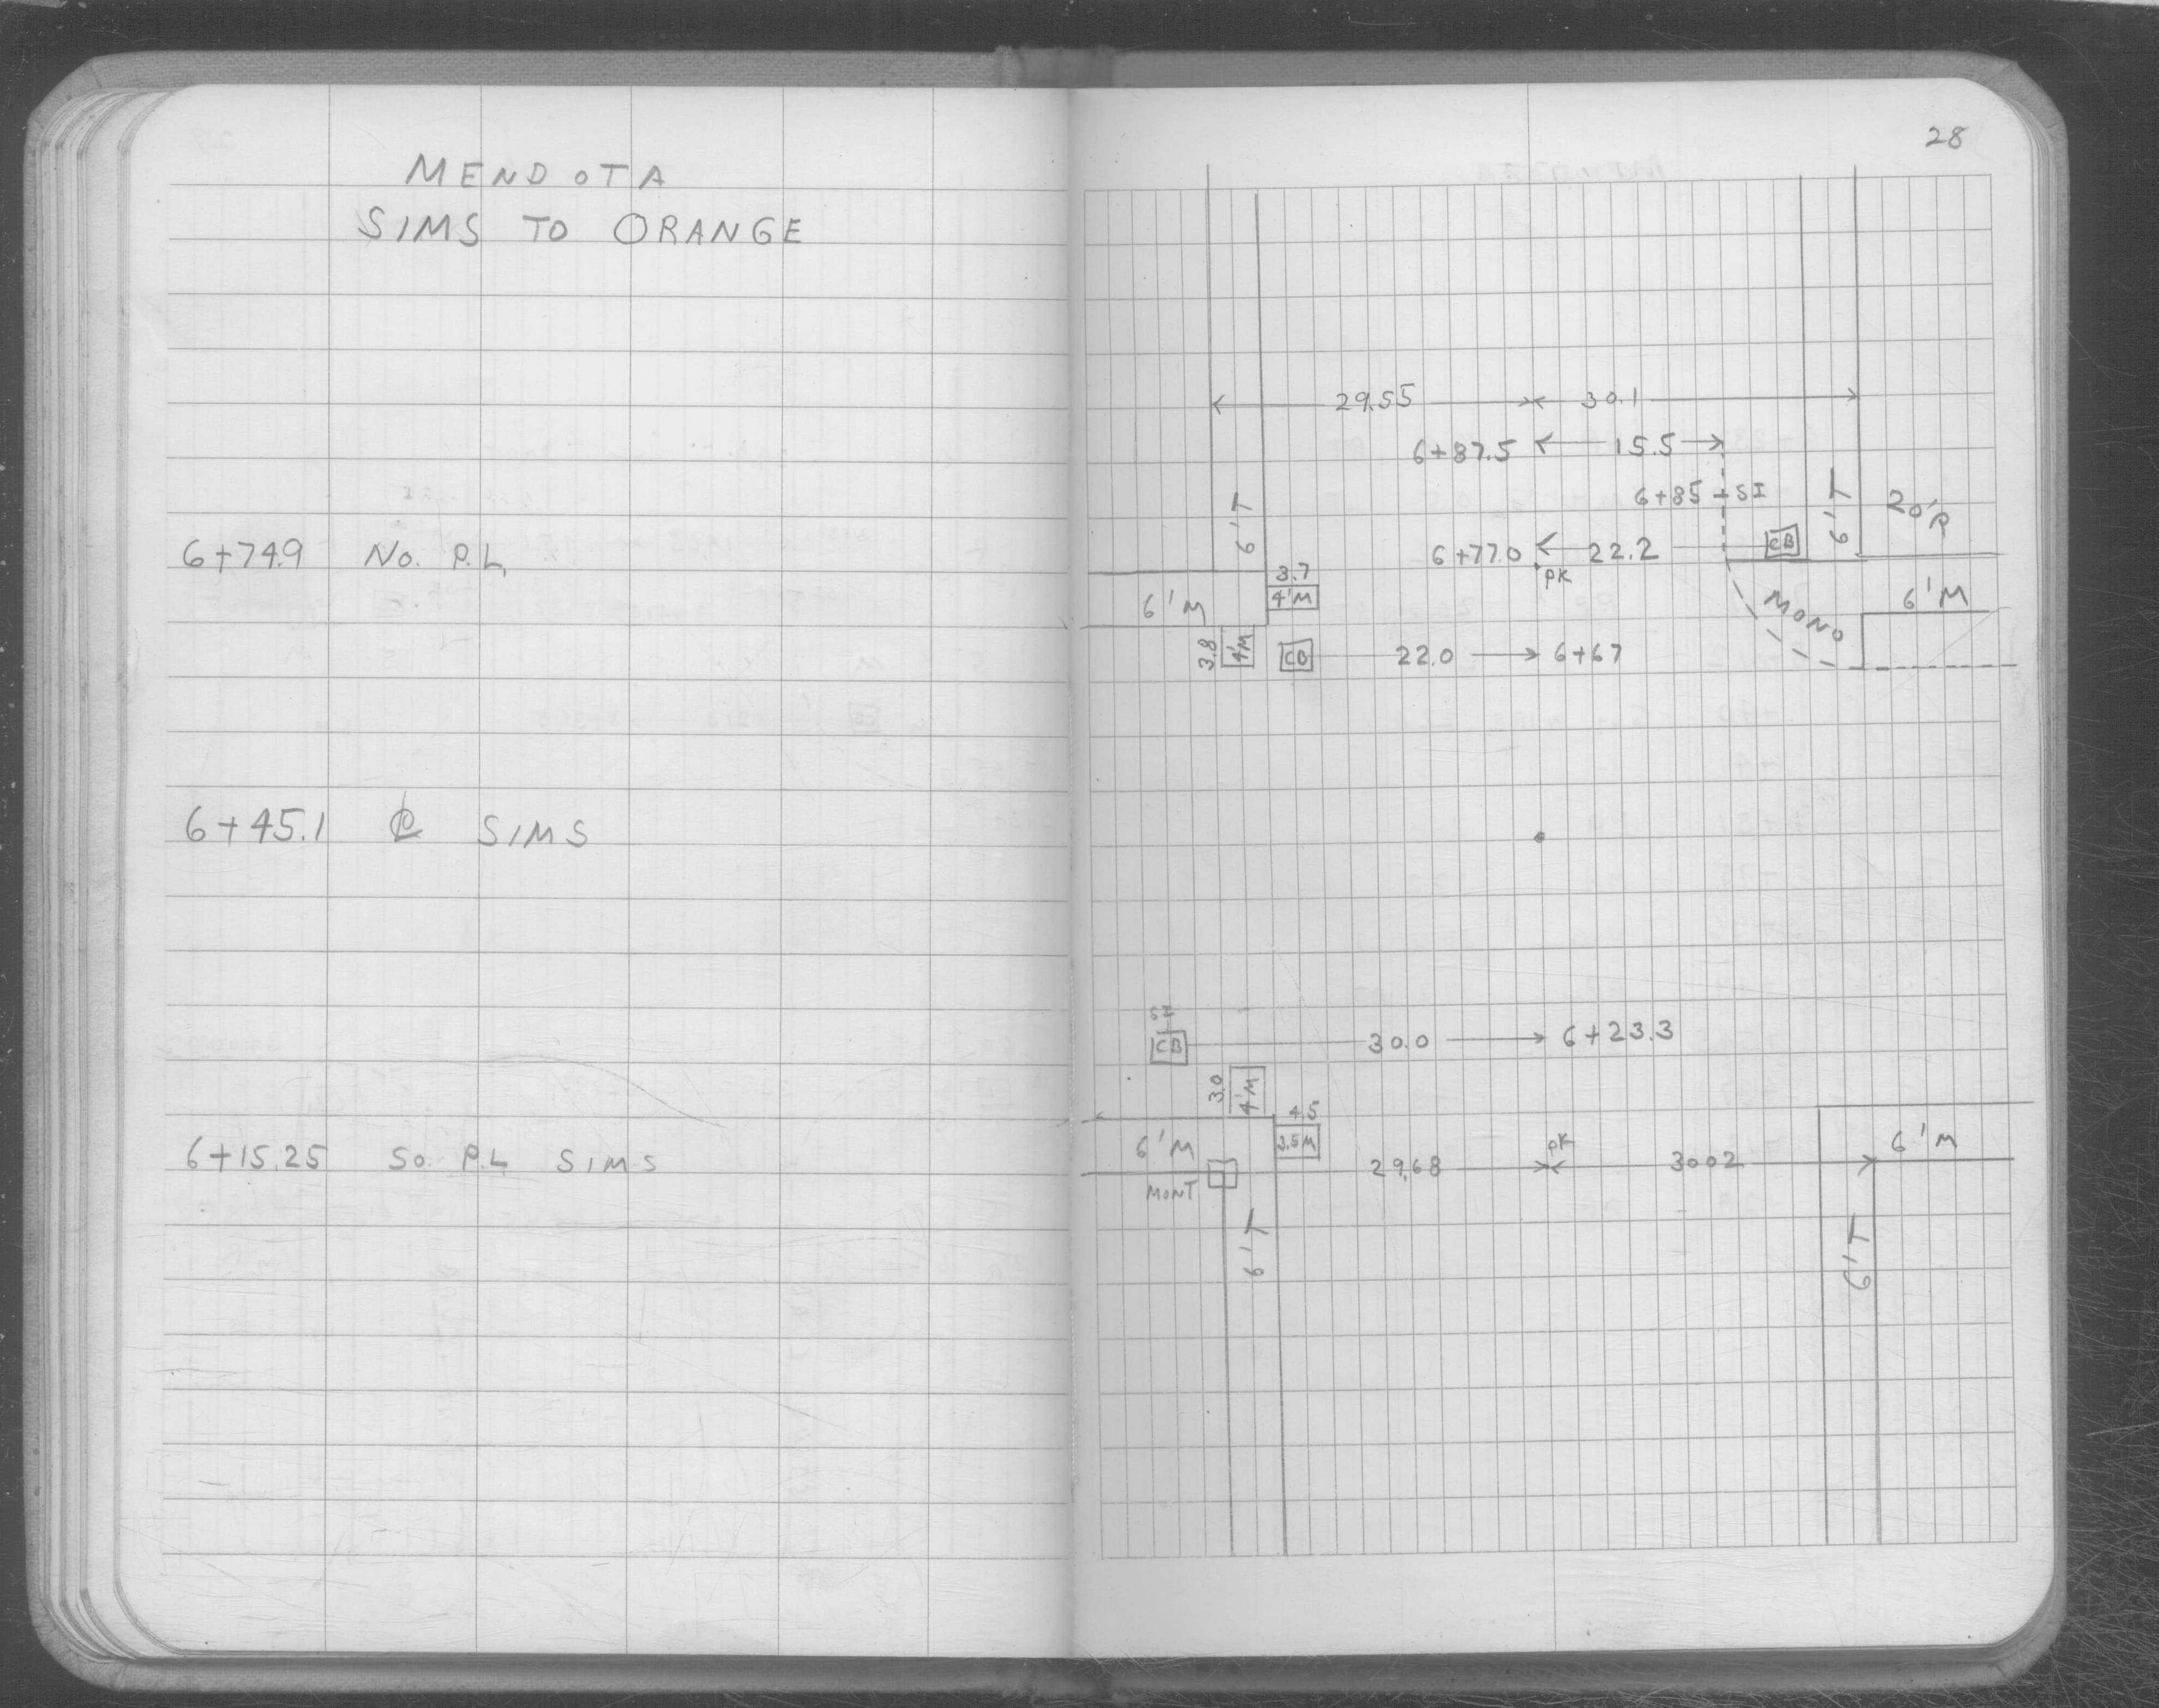 MENDOTA
SIMS TO ORANGE
6+74.9 No. P.L.
6+45.1 ℄ SIMS
6+15.25 So. P.L SIMS
28
29.55 30.1
6+87.5 15.5
6+85 SI
6'T 6'T 20'P
6+77.0 22.2 CB
PK
3.7
6'M 4'M MONO 6'M
3.8 4'M CB 22.0 6+67
SI
CB 30.0 6+23.3
3.0 4'M
4.5
6'M 3.5M PK 6'M
29.68 30.02
MONT
6'T 6'T